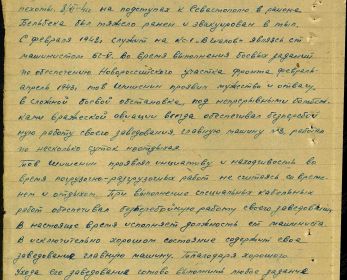 пехоты. на подступах к Севастополю в районе
Бельбека был тяжело ранен и эвакуирован в тыл.
С февраля 1943г. служит на ст
машинистом Во время выполнения боевых заданий
по обеспечению Новороссийского участка фронта февраль-
апрель 1943г. тов Шишенин проявил мужество и отвагу,
в сложной боевой обстановке, под непрерывными бомбеж-
ками вражеской авиации всегда обеспечивал бесперебой
ную работу своего заведования главную машину №3, работая
по несколько суток настойчиво
тов Шишенин проявлял инициативу и находчивость во
время погрузочно-разгрузочных работ не считаясь со време-
нем и отдыхом. При выполнении специальных кабельных
работ обеспечивал бесперебойную работу своего заведования
В настоящее время исполняет должность ст машиниста
В исключительно хорошем состояние содержит свое
заведование главную машину. Благодаря хорошего
ухода его заведование готово выполнить любое задание